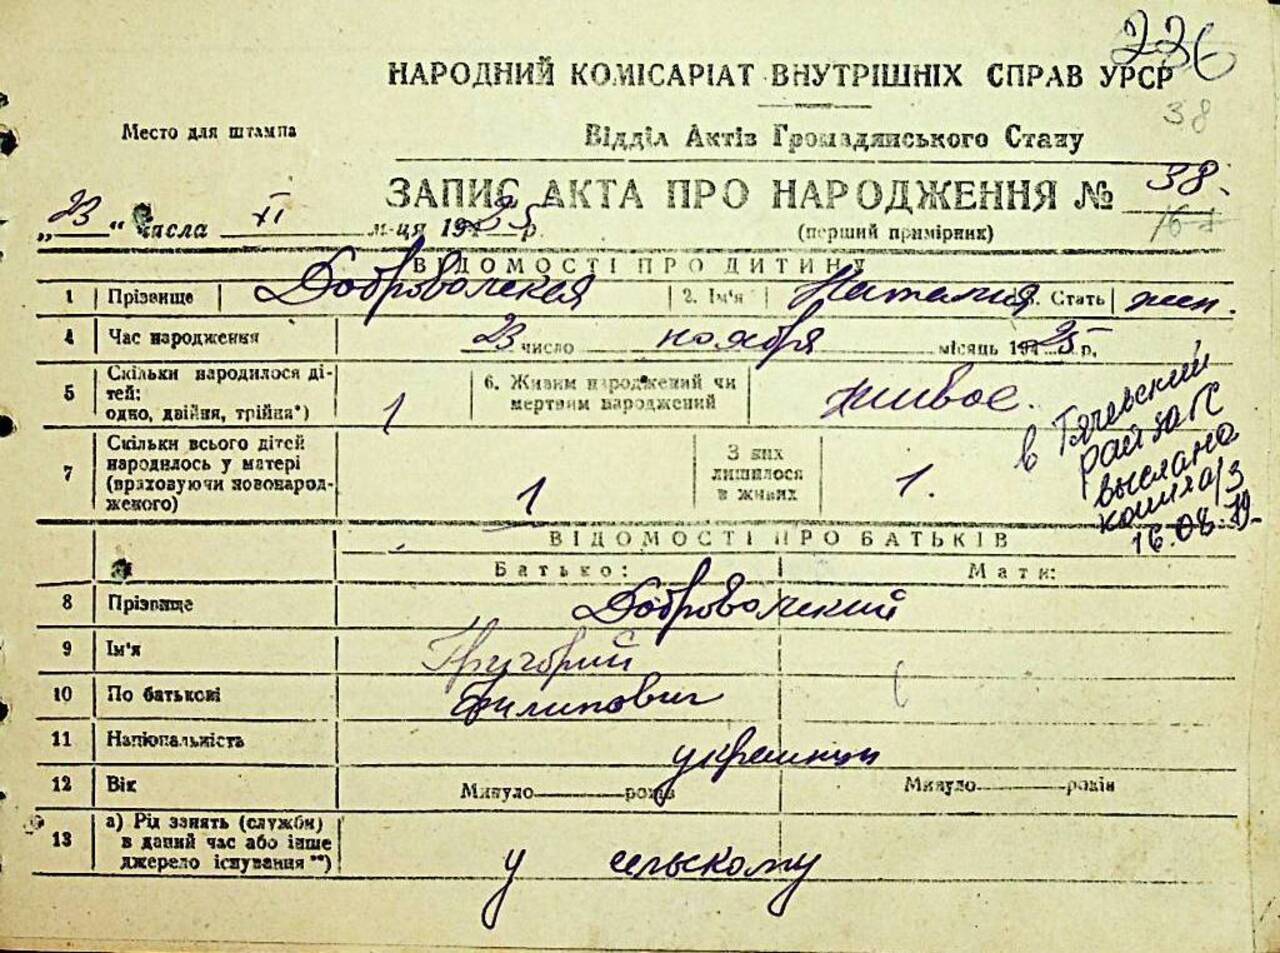 236
НАРОДНИЙ КОМІСАРІАТ ВНУТРІШНІХ СПРАВ УРСР
38
Место для штампа
Відділ Актів Громадянського Стану
ЗАПИС АКТА ПРО НАРОДЖЕННЯ № 38.
„23“ числа XI м-ця 1925 р.
(перший примірник)
ВІДОМОСТІ ПРО ДИТИНУ
1 Прізвище Добровольская 2. Ім'я Наталия 3. Стать жен.
4 Час народження 23 число ноября місяць 1925 р.
5 Скільки народилося ді-
тей:
одно, двійня, трійня*) 1
6. Живим народжений чи
мертвим народжений живое.
7 Скільки всього дітей
народилось у матері
(враховуючи новонарод-
женого) 1
З них
лишилося
в живих 1.
в Тячевский
рай загс
выслана
копия а/з
16.08.79.
ВІДОМОСТІ ПРО БАТЬКІВ
Батько: Мати:
8 Прізвище Добровольский
9 Ім'я Григорий
10 По батькові Филипович
11 Національність украинцы
12 Вік Минуло років Минуло років
13 а) Рід занять (служби)
в даний час або інше
джерело існування**) у сельскому